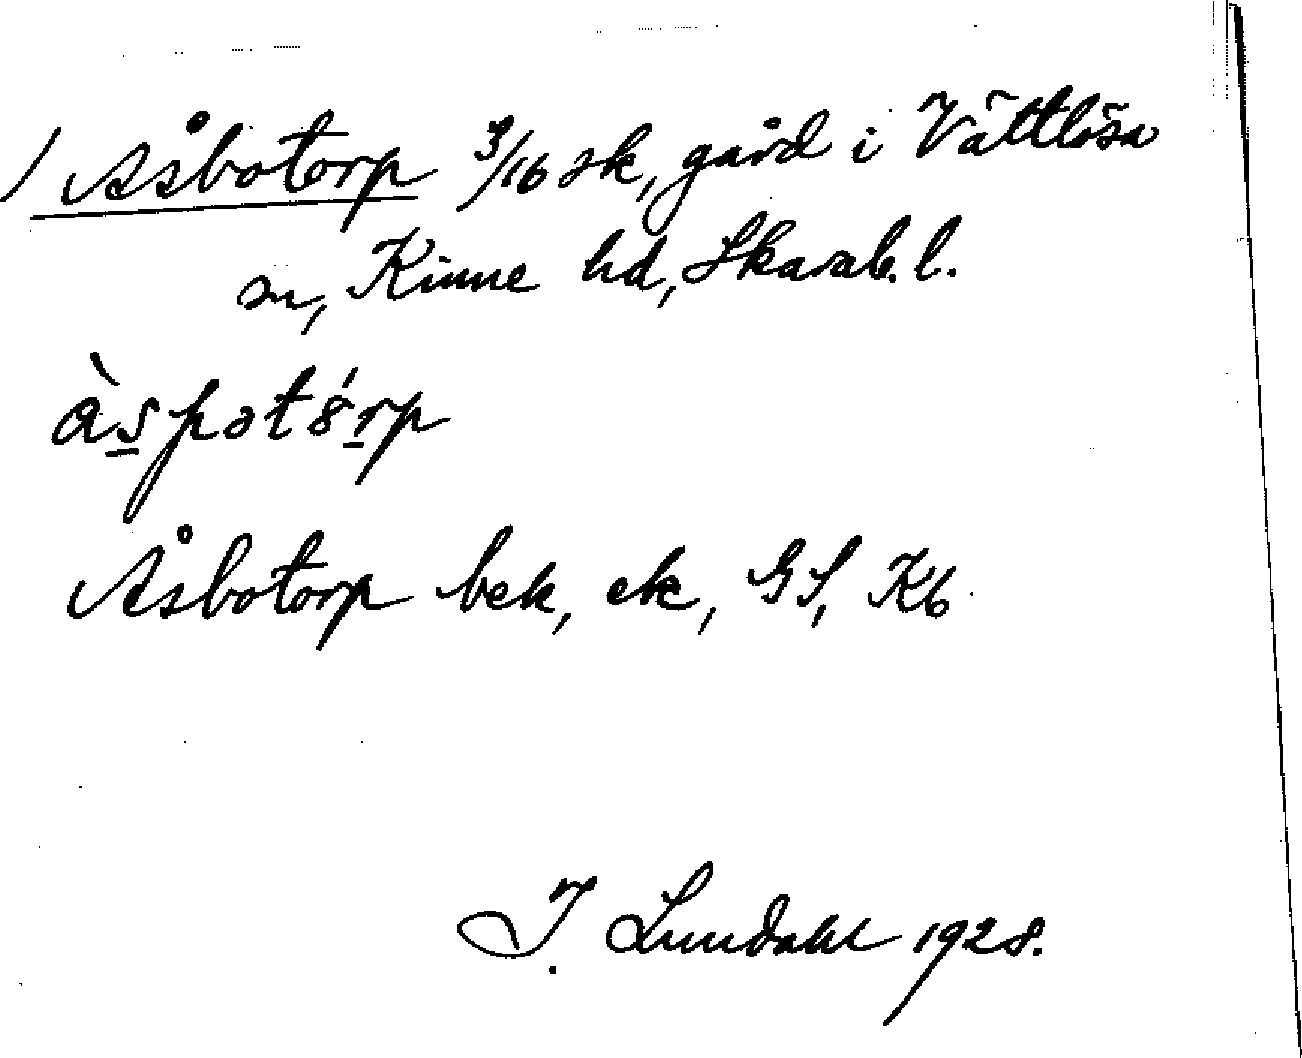 / Åsbotorp 3/16 sk, gård i Vättlösa
sn, Kinne hd, Skarab. l.
àspatǻrp
Åsbotorp bek, ek, GS, Kb
I. Lundahl 1928.